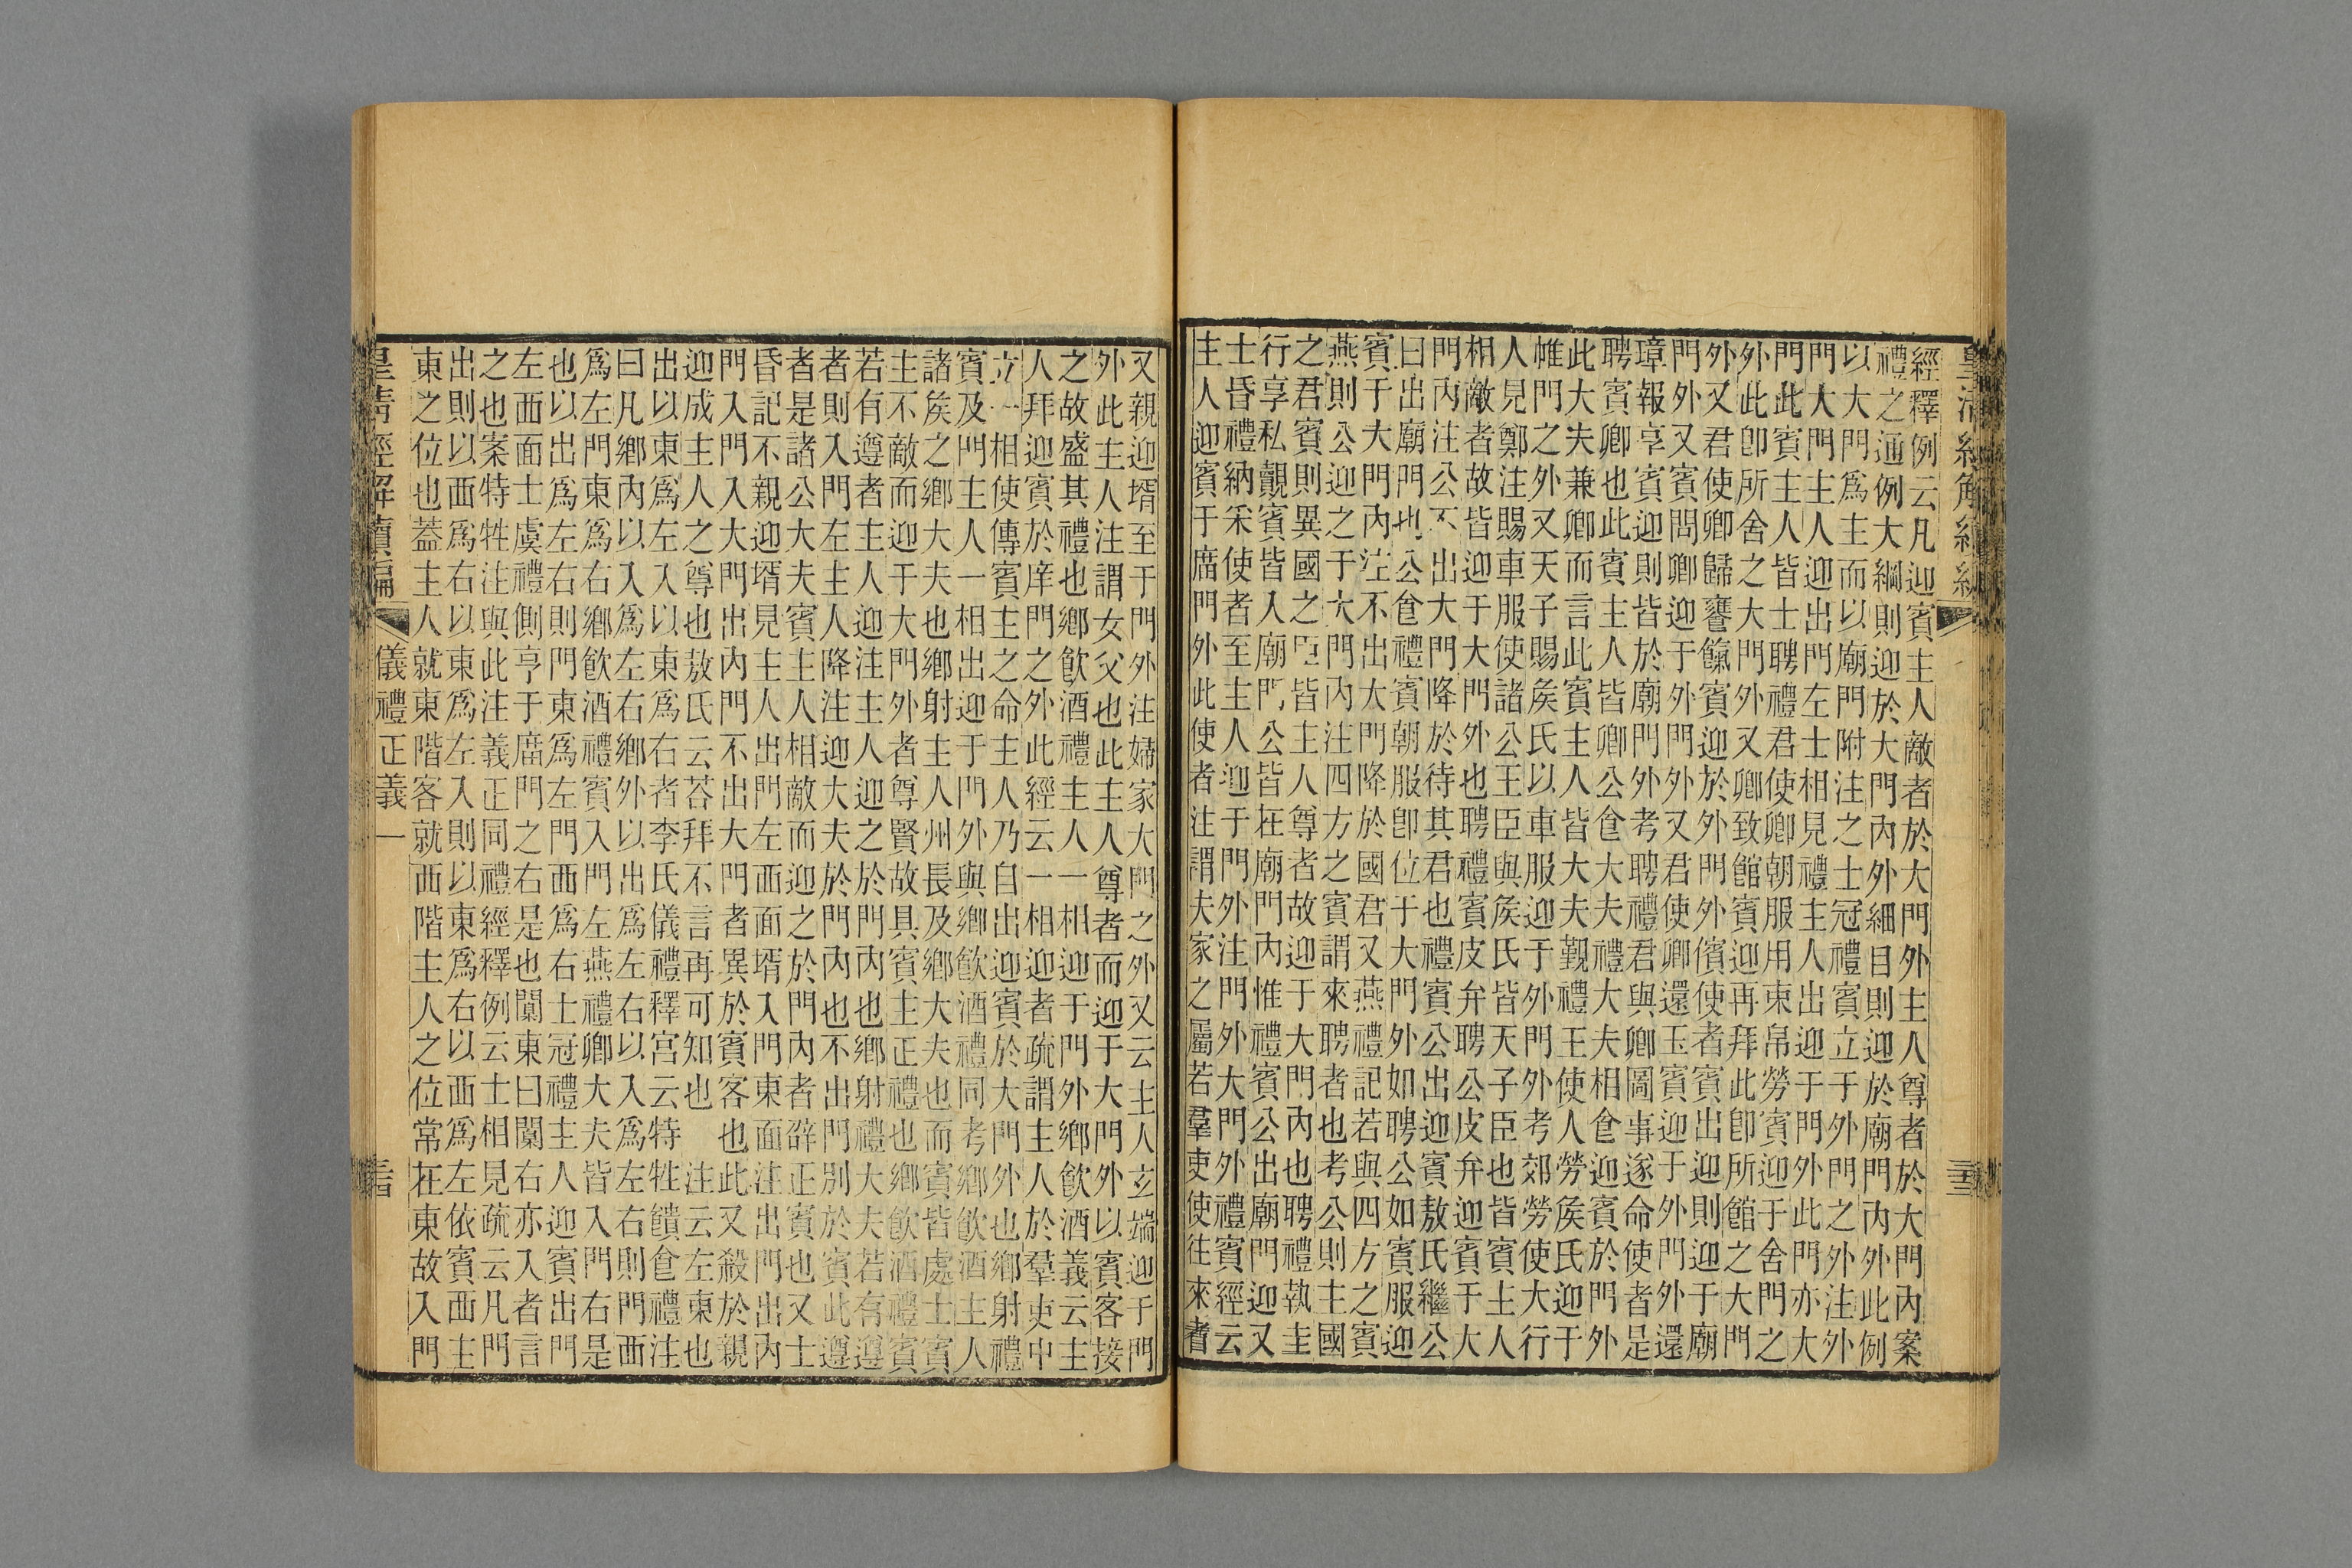 皇清經解續編
三三
經釋例云凡迎賓主人敵者於大門外主人尊者於大門內案
禮之通例大綱則迎於大門內外細目則迎於廟門內外此例
以大門爲主而以廟門附注之士冠禮賓立于外門之外注外
門大門主人迎出門左士相見禮主人出迎于門外此門亦大
門此賓主人皆士聘禮君使卿朝服用束帛勞賓迎于舍門之
外此卽所舍之大門外又卿致館賓迎再拜此卽所館之大門
外又君使卿歸饔餼賓迎於外門外儐使者賓出迎則迎于廟
門外又賓問卿卿迎于外門外又君使卿還玉賓迎于外門外還
璋報享賓迎則皆於廟門外考聘禮君與卿圖事遂命使者是
聘賓卿也此賓主人皆卿公食大夫禮大夫相食迎賓於門外
此大夫兼卿而言此賓主人皆大夫覲禮王使人勞矦氏迎于
帷門之外又天子賜矦氏以車服迎于外門外考郊勞使大行
人見鄭注賜車服使諸公王臣與矦氏皆天子臣也皆賓主人
相敵者故皆迎于大門外也聘禮賓皮弁聘公皮弁迎賓于大
門內注公不出大門降於待其君也禮賓公出迎賓敖氏繼公
曰出廟門也公食禮賓朝服卽位于大門外如聘公如賓服迎
賓于大門內注不出大門降於國君又燕禮記若與四方之賓
燕則公迎之于大門內注四方之賓謂來聘者也考公則主國
之君賓則異國之臣皆主人尊者故迎于大門內也聘禮執圭
行享私覿賓皆入廟門公皆在廟門內惟禮賓公出廟門迎又
士昏禮納采使者至主人迎于門外注門外大門外禮賓經云
主人迎賓于廟門外此使者注謂夫家之屬若羣吏使往來者
又親迎壻至于門外注婦家大門之外又云主人玄端迎于門
外此主人注謂女父也此主人尊者而迎于大門外以賓客接
之故盛其禮也鄉飮酒禮主人一相迎于門外鄉飮酒義云主
人拜迎賓於庠門之外此經云一相迎者疏謂主人於羣吏中
立一相使傳賓主之命主人乃自出迎賓於大門外也鄉射禮
賓及門主人一相出迎于門外與鄉飮酒禮同考鄉飮酒主人
諸矦之鄉大夫也鄉射主人州長及鄉大夫也而賓皆處士賓
主不敵而迎于大門外者尊賢故具賓主正禮也鄉飮酒禮賓
若有遵者主人迎注主人迎之於門內也鄉射禮大夫若有遵
者則入門左主人降注迎大夫於門內也不出門別於賓此遵
者是諸公大夫賓主人相敵而迎之於門內者辟正賓也又士
昏記不親迎壻見主人出門左西面壻入門東面注出門出內
門入門入大門出內門不出大門者異於賓客也此又殺於親
迎成主人之尊也敖氏云荅拜不言再可知也 注云左東也
出以東爲左入以東爲右者李氏儀禮釋宮云特牲饋食禮注
曰凡鄉內以入爲左右鄉外以出爲左右以入爲左右則門西
爲左門東爲右鄉飮酒禮賓入門左燕禮卿大夫皆入門右是
也以出爲左右則門東爲左門西爲右士冠禮主人迎賓出門
左西面士虞禮側亨于庿門之右是也闑東曰闑右亦入者言
之也案特牲注與此注義正同禮經釋例云士相見疏云凡門
出則以西爲右以東爲左入則以東爲右以西爲左依賓西主
東之位也蓋主人就東階客就西階主人之位常在東故入門
皇清經解續編
儀禮正義一